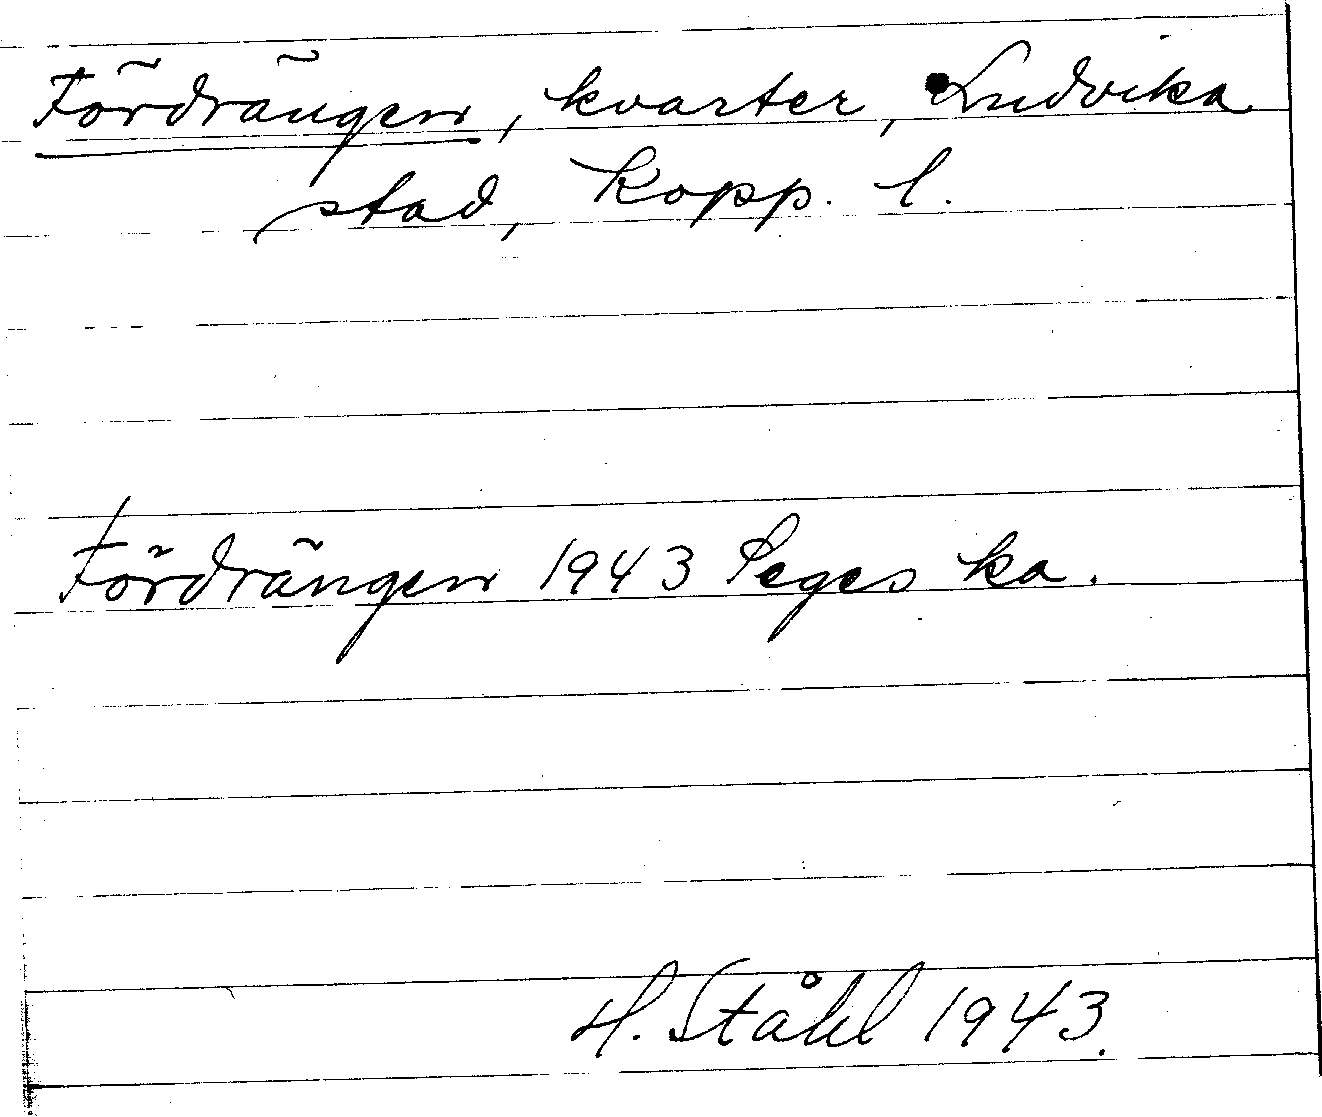 Fördrängen, kvarter, Ludvika
stad, Kopp. l.
Fördrängen 1943 Seges ka.
H. Ståhl 1943.